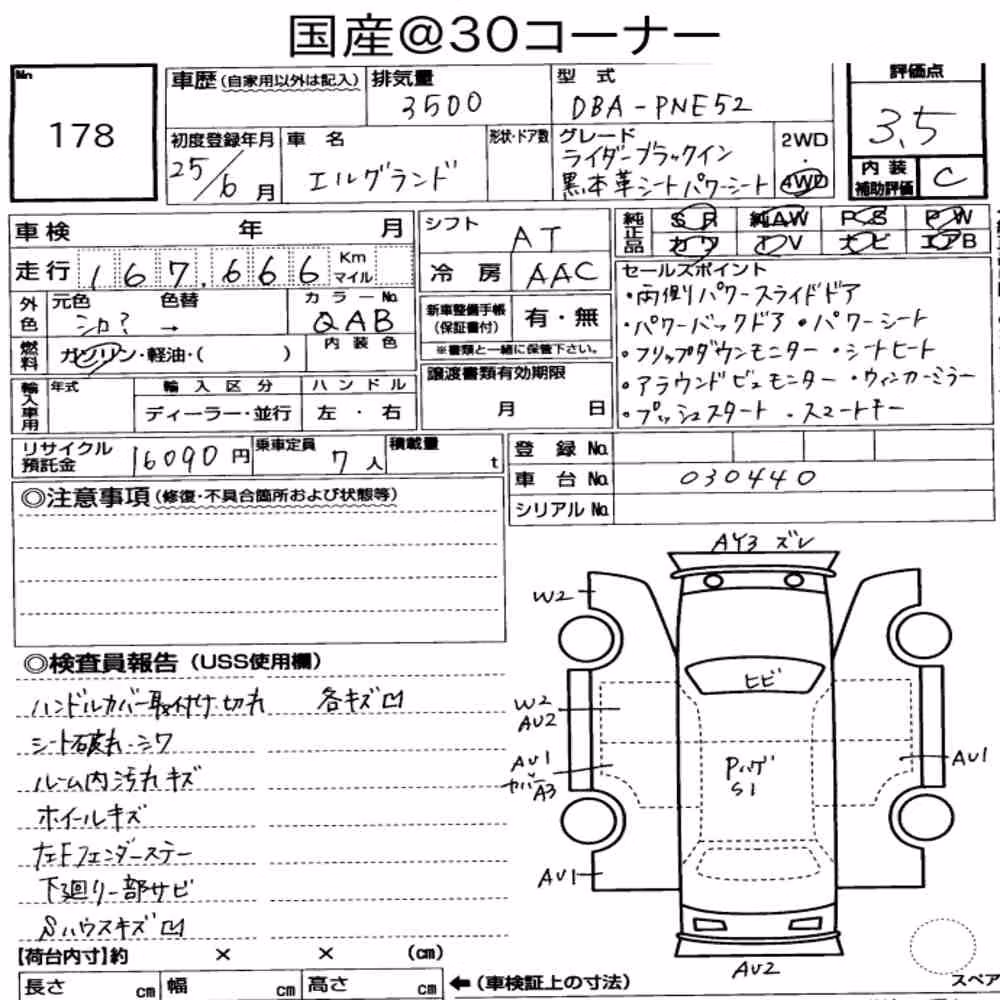 国産@30コーナー
No.
178
車歴(自家用以外は記入)
排気量
3500
型 式
DBA-PNE52
評価点
3.5
内装
補助評価
C
初度登録年月
25/6月
車 名
エルグランド
形状・ドア数
グレード
ライダーブラックイン
黒本革シートパワーシート
2WD
・
4WD
車検 年 月
走行 167,666 Km
マイル
シフト
AT
冷房
AAC
純正品
SR 純AW PS PW
カワ TV ナビ エアB
外色
元色
シロ?
→
色替
カラーNo.
QAB
燃料
ガソリン・軽油・( )
内装色
新車整備手帳
(保証書付)
有・無
※書類と一緒に保管下さい。
セールスポイント
・両側パワースライドドア
・パワーバックドア ・パワーシート
・フリップダウンモニター ・シートヒート
・アラウンドビューモニター ・ウィンカーミラー
・プッシュスタート ・スマートキー
輸入車用
年式
輸入区分
ディーラー・並行
ハンドル
左・右
譲渡書類有効期限
月 日
リサイクル
預託金
16090円
乗車定員
7人
積載量
t
登録No.
車台No.
030440
シリアルNo.
◎注意事項(修復・不具合箇所および状態等)
◎検査員報告(USS使用欄)
ハンドルカバー取付け.切れ 各キズ凹
シート破れ・シワ
ルーム内汚れキズ
ホイールキズ
左Fフェンダーステー
下廻り一部サビ
Sハウスキズ凹
AY3 ズレ
W2
ヒビ
W2
AU2
AU1
ヤバ
A3
Pハゲ
S1
AU1
AU1
AU2
【荷台内寸】約 × × (cm)
長さ cm 幅 cm 高さ cm
←(車検証上の寸法)
スペア